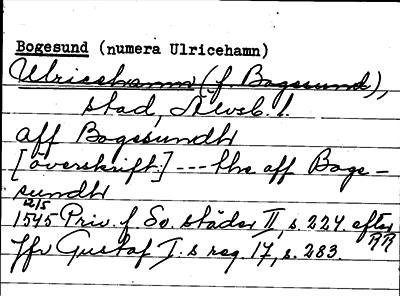 Bogesund (numera Ulricehamn)
Ulricehamn (f. Bogesund),
stad, Älvsb. l.
aff Bogesundh
[överskrift:] --- the aff Boge-
sundh
12/5
1545 Priv. f. Sv. städer II, s. 224. efter RR
Jfr Gustaf I:s reg. 17, s. 283.